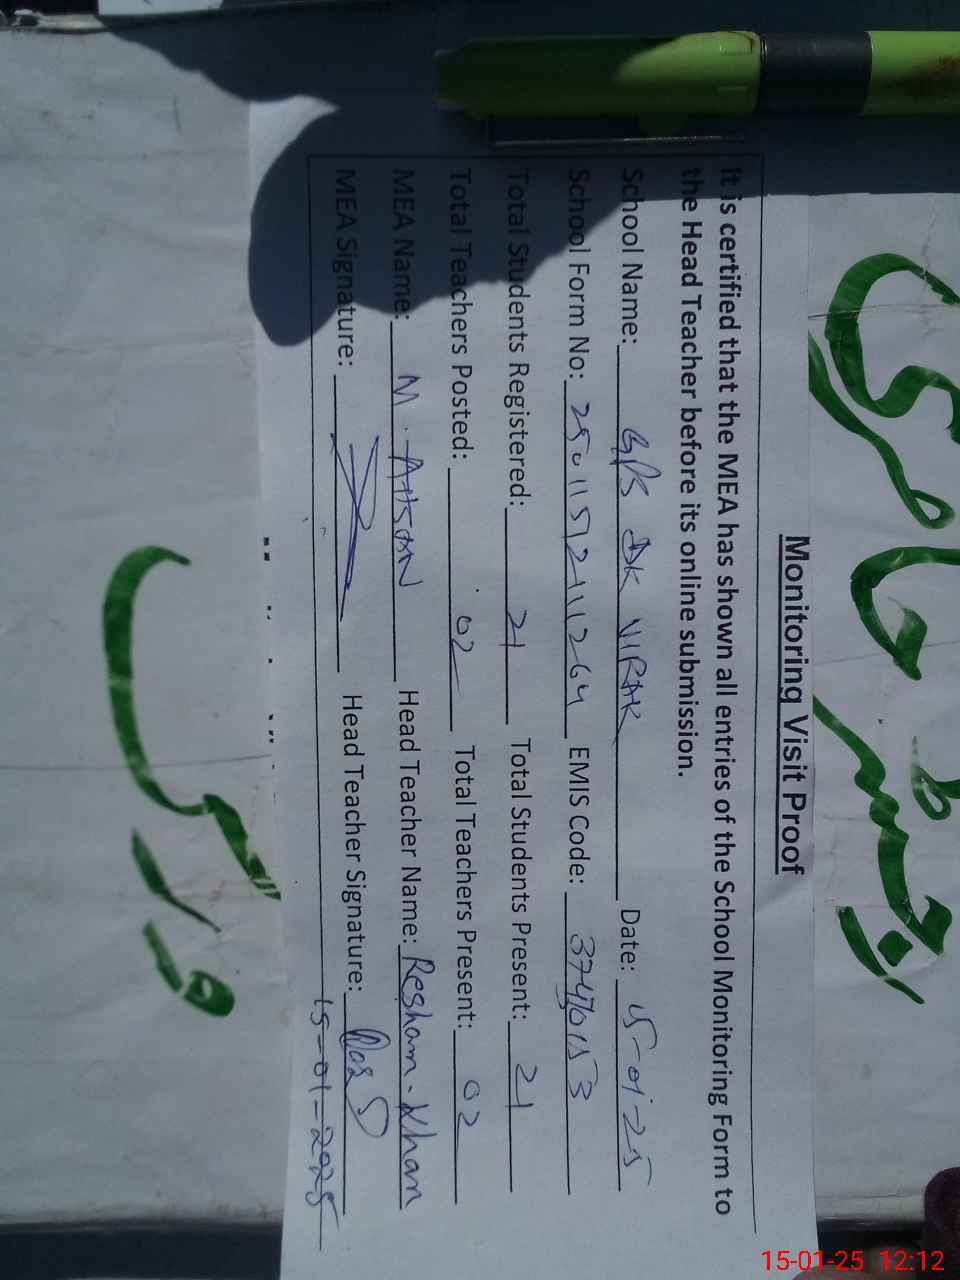 Monitoring Visit Proof
It is certified that the MEA has shown all entries of the School Monitoring Form to
the Head Teacher before its online submission.
School Name: GPS DK VIRAK Date: 15-01-25
School Form No: 250115921111264 EMIS Code: 37470153
Total Students Registered: 21 Total Students Present: 21
Total Teachers Posted: 02 Total Teachers Present: 02
MEA Name: M. AHSAN Head Teacher Name: Resham. Khan
MEA Signature: Head Teacher Signature:
15-01-2025
15-01-25 12:12